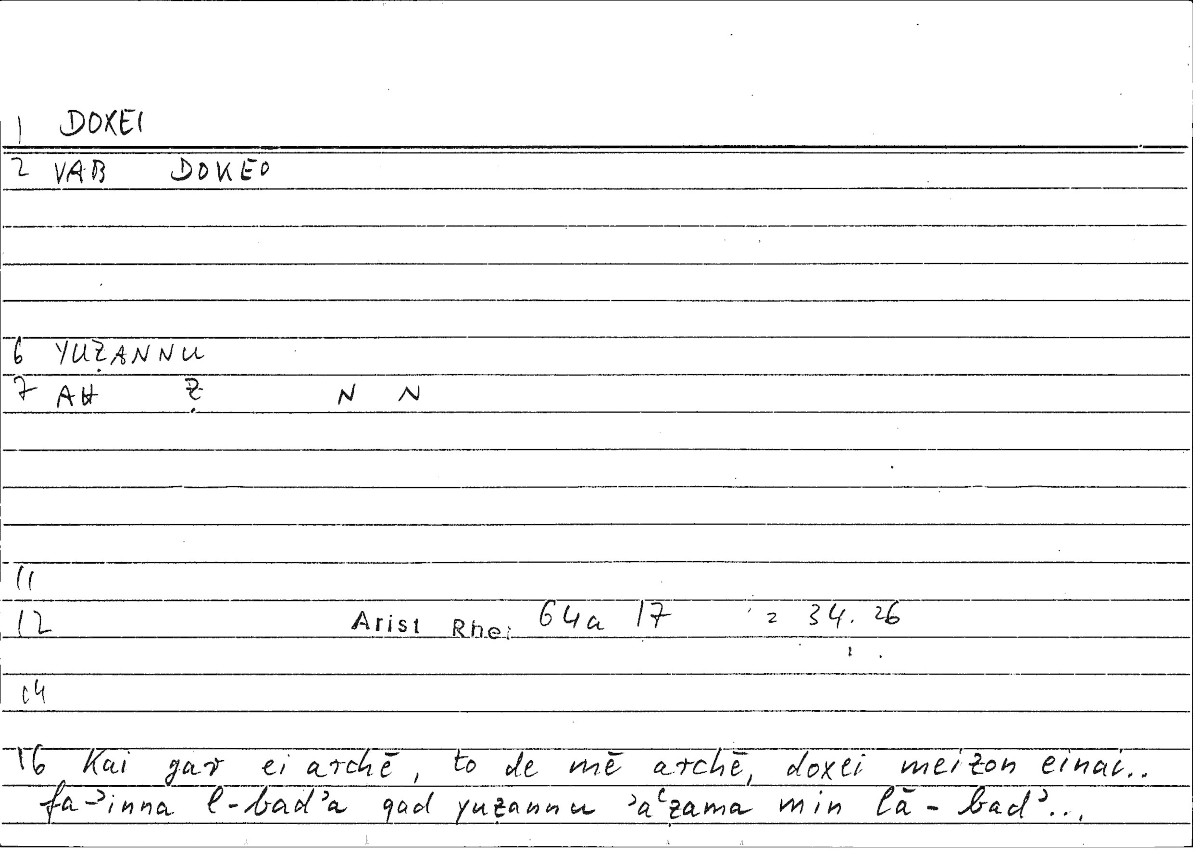 1 DOXEI
2 VAB DOKEO
6 YUẒANNU
7 AH Ẓ N N
11
12 Arist Rhet 64a 17 = 34.26
14
16 Kai gar ei archē, to de mē archē, doxei meizon einai..
fa-ʾinna l-badʾa qad yuẓannu ʾaʿẓama min lā-badʾ...